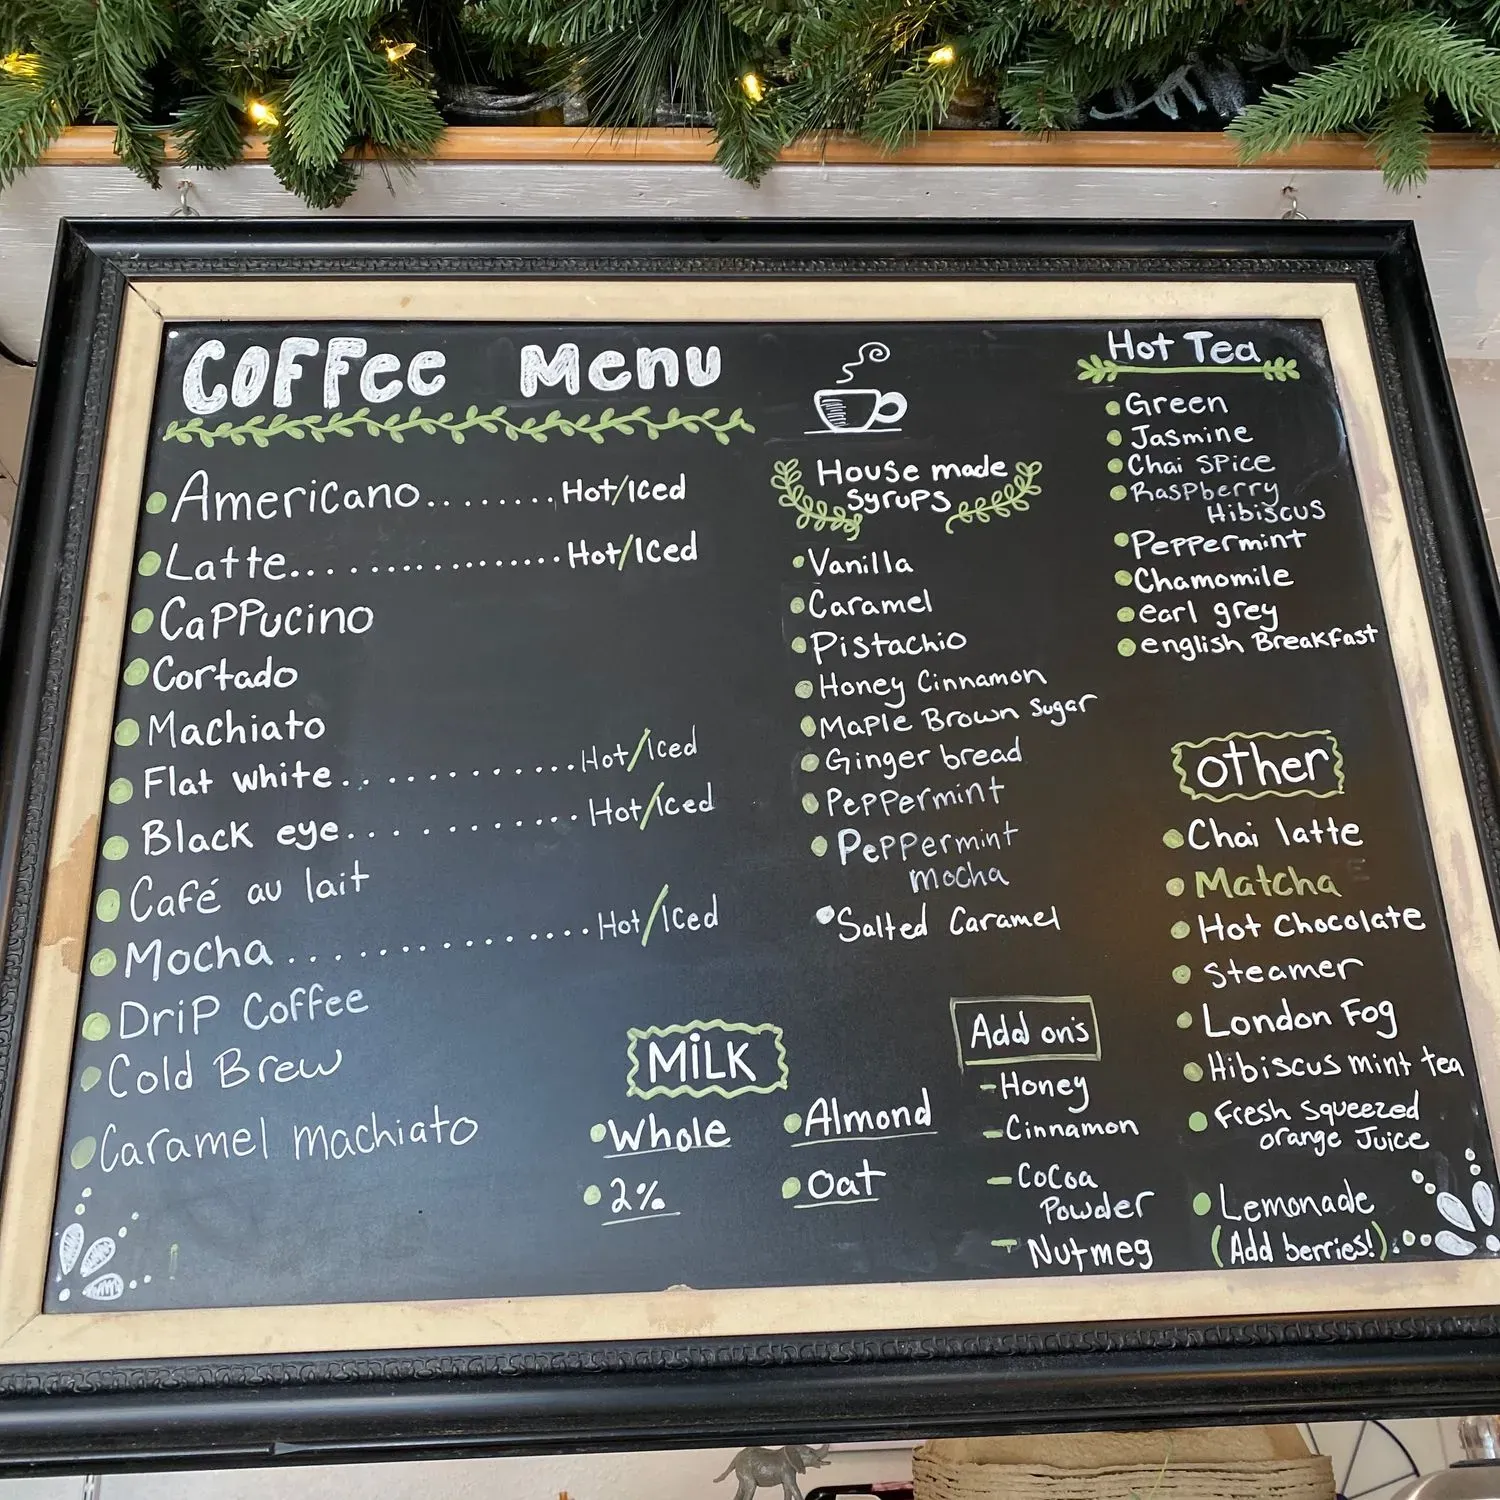 COFFee Menu
Americano........Hot/Iced
Latte..................Hot/ICed
CaPPUcino
Cortado
Machiato
Flat white..............Hot/Iced
Black eye.............Hot/Iced
Café au lait
Mocha.................Hot/Iced
DriP Coffee
Cold Brew
Caramel machiato
House made
Syrups
Vanilla
Caramel
Pistachio
Honey Cinnamon
Maple Brown Sugar
Ginger bread
Peppermint
Peppermint
mocha
Salted Caramel
MiLK
Whole
2%
Almond
Oat
Add on's
-Honey
-Cinnamon
-Cocoa
Powder
-Nutmeg
Hot Tea
Green
Jasmine
Chai Spice
Raspberry
Hibiscus
Peppermint
Chamomile
earl grey
english Breakfast
other
Chai latte
Matcha
Hot Chocolate
Steamer
London Fog
Hibiscus mint tea
Fresh Squeezed
orange Juice
Lemonade
(Add berries!)